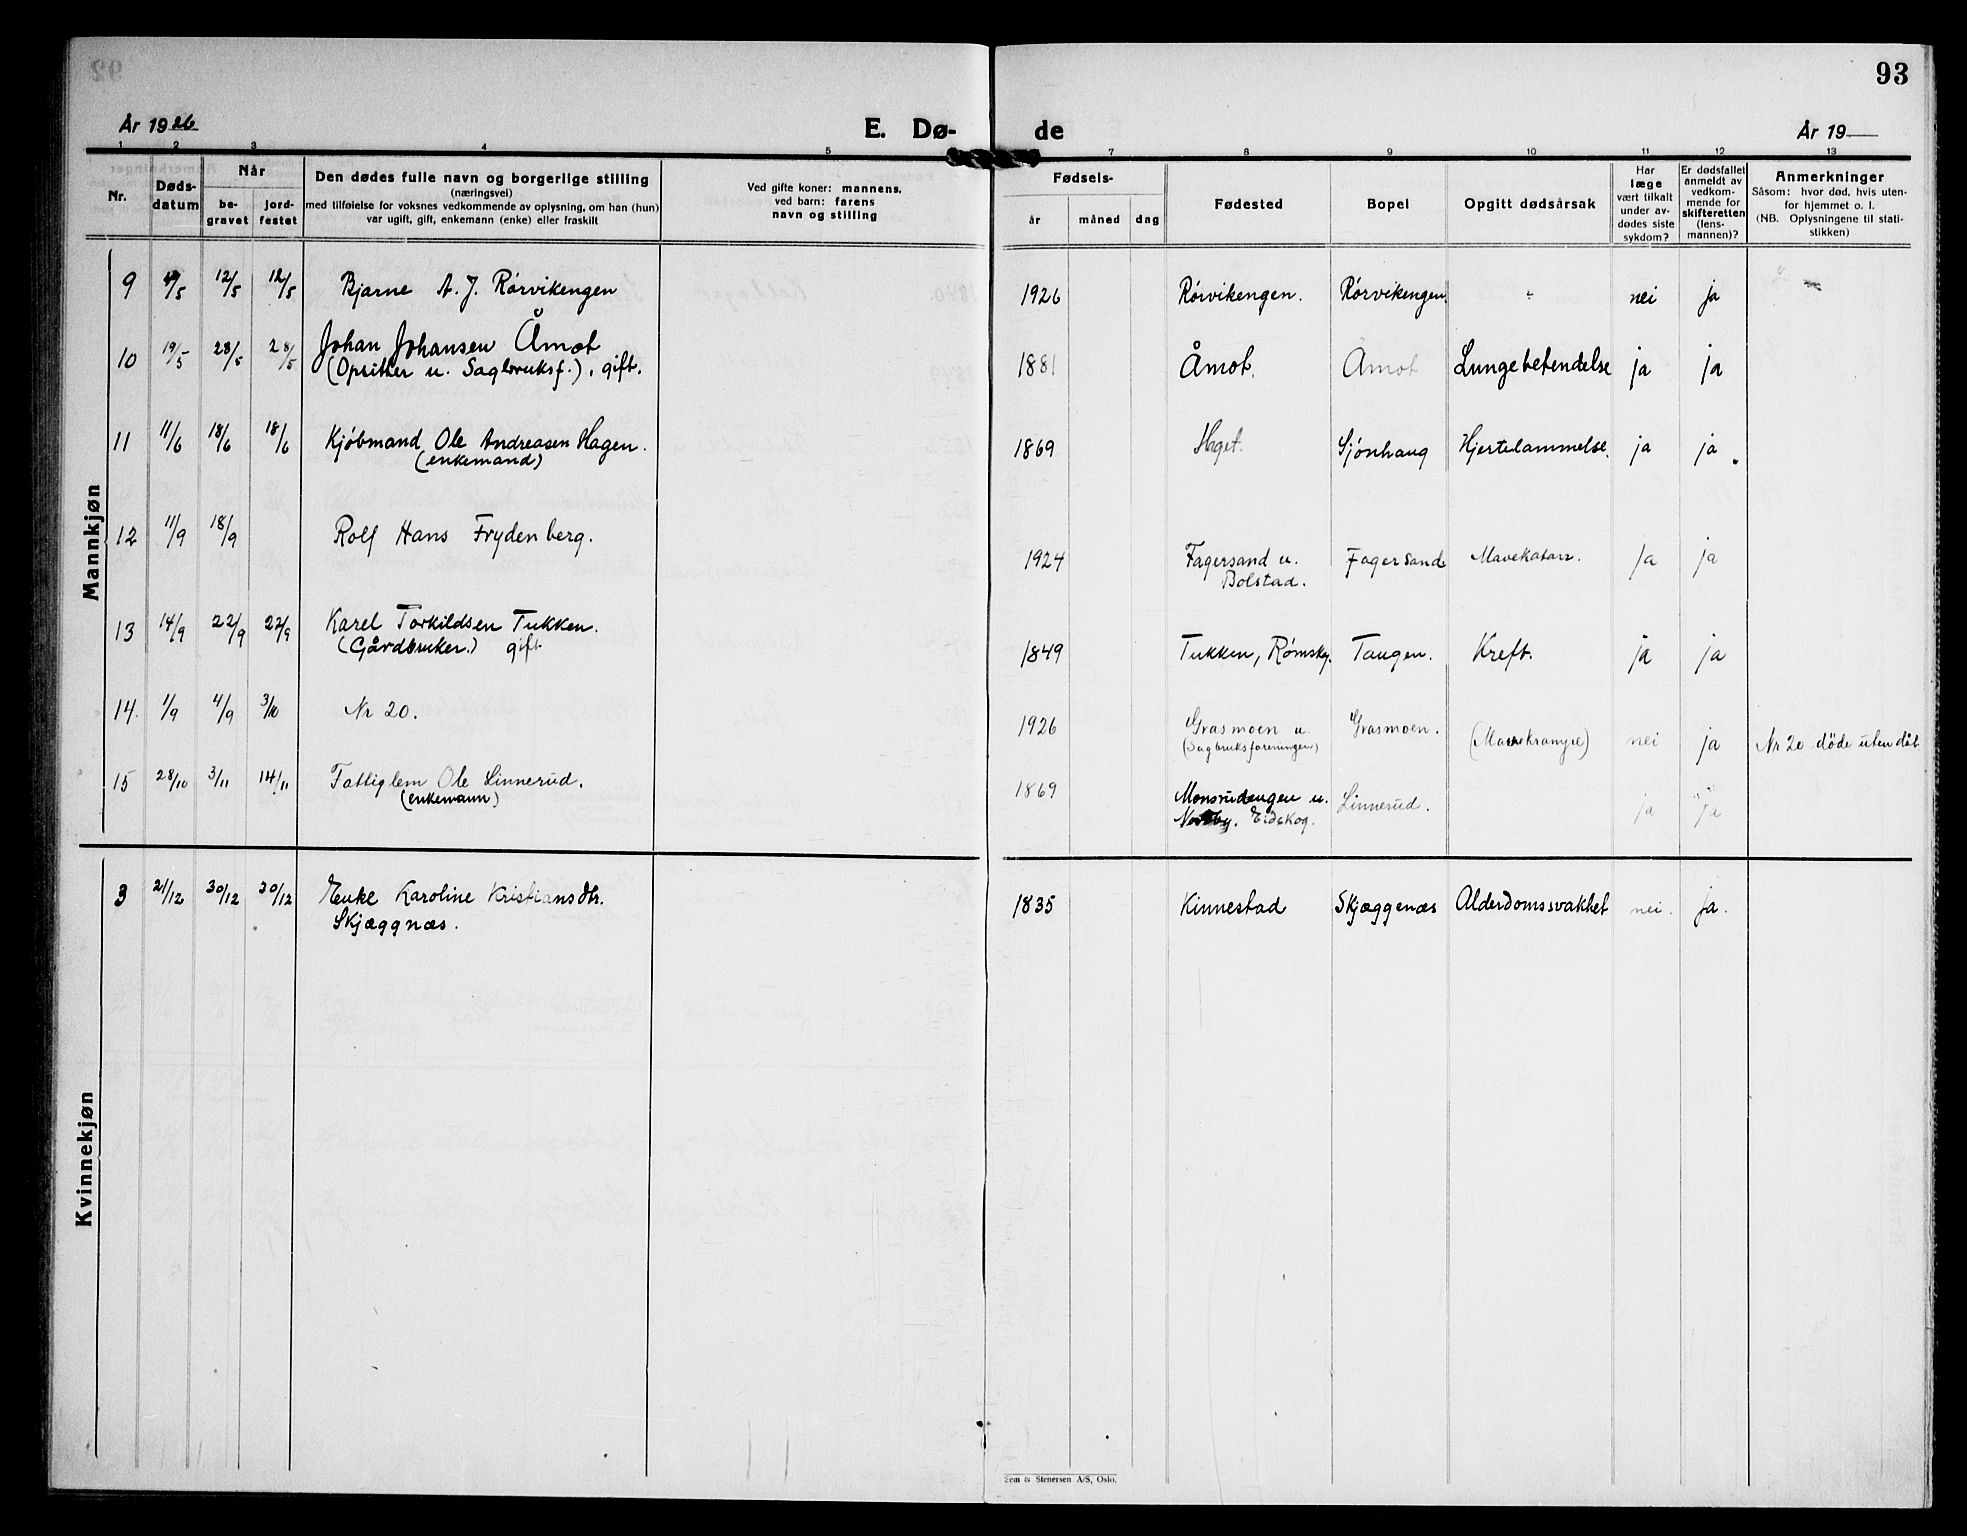 93
År 1926 E. Dø- de År 19
1 2 3 4 5 7 8 9 10 11 12 13
Nr.
Døds-
datum
Når
be-
gravet
jord-
festet
Den dødes fulle navn og borgerlige stilling
(næringsvei)
med tilføielse for voksnes vedkommende av oplysning, om han (hun)
var ugift, gift, enkemann (enke) eller fraskilt
Ved gifte koner: mannens,
ved barn: farens
navn og stilling
Fødsels-
år måned dag
Fødested
Bopel
Opgitt dødsårsak
Har
læge
vært tilkalt
under av-
dødes siste
sykdom?
Er dødsfallet
anmeldt av
vedkom-
mende for
skifteretten
(lens-
mannen)?
Anmerkninger
Såsom: hvor død, hvis uten-
for hjemmet o. l.
(NB. Oplysningene til stati-
stikken)
Mannkjøn
9 12/5 12/5 Bjarne A. J. Rørvikengen 1926 Rørvikengen. Rørvikengen. nei ja
10 19/5 28/5 28/5 Johan Johansen Åmot
(Opsitter u. Sagbruksf.), gift. 1881 Åmot. Åmot Lungebetendelse ja ja
11 11/6 18/6 18/6 Kjøbmand Ole Andreasen Hagen.
(enkemand) 1869 Sjønhaug Hjertelammelse. ja ja
12 11/9 18/9 Rolf Hans Frydenberg. 1924 Fagersand u.
Bolstad. Fagersand Mavekatarr. ja ja
13 14/9 22/9 22/9 Karel Torkildsen Tukken.
(Gårdbruker.) gift 1849 Tukken, Rømskg. Tangen. Kreft. ja ja
14. 1/9 4/9 3/10 Nr 20. 1926 Grasmoen u.
(Sagbruksforeningen) Grasmoen. (Mavekrampe) nei ja Nr 20 døde uten dåb
15 28/10 3/11 14/11 Fattiglem Ole Linnerud.
(enkemann) 1869 Monsrudengen u.
Eidskog. Linnerud. ja ja
Kvinnekjøn
3 21/12 30/12 30/12 Enke Karoline Kristiansdtr.
Skjæggnæs. 1835 Kinnestad Skjæggenæs Alderdomssvakhet nei. ja.
Sem & Stenersen A/S, Oslo.